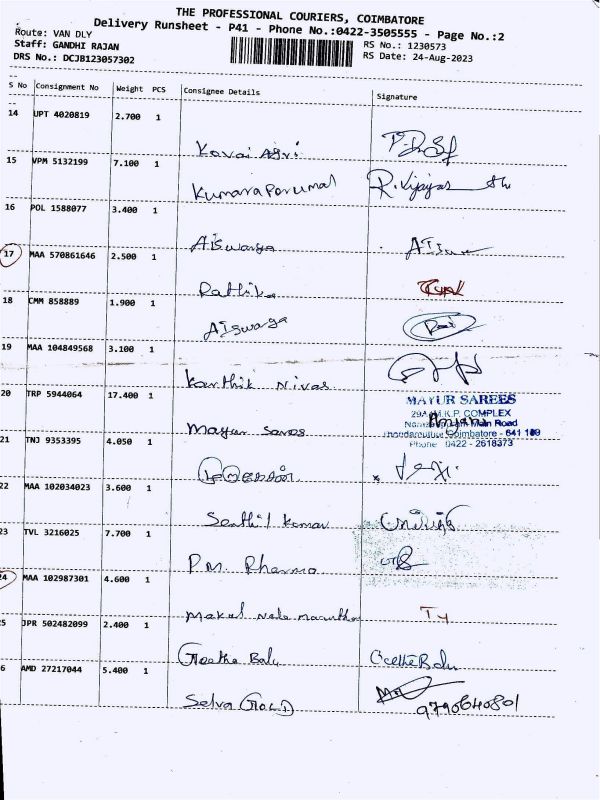 THE PROFESSIONAL COURIERS, COIMBATORE
Delivery Runsheet - P41 - Phone No.:0422-3505555 - Page No.:2
Route: VAN DLY
Staff: GANDHI RAJAN
DRS No.: DCJB123057302
RS No.: 1230573
RS Date: 24-Aug-2023
S No Consignment No Weight PCS Consignee Details Signature
14 UPT 4020819 2.700 1
Kovai Agri
15 VPM 5132199 7.100 1
Kumaraperumal R.Vijaya
16 POL 1588077 3.400 1
Aiswarya
17 MAA 570861646 2.500 1
Rathika
18 CMM 858889 1.900 1
Aiswarya
19 MAA 104849568 3.100 1
Karthik Nivas
20 TRP 5944064 17.400 1
Mayur Sarees
MAYUR SAREES
K.P. COMPLEX
Main Road
Coimbatore - 641 109
Phone 0422 - 2618373
21 TNJ 9353395 4.050 1
22 MAA 102034023 3.600 1
Senthil Kumar
23 TVL 3216025 7.700 1
P.M. Pharma
24 MAA 102987301 4.600 1
Ty
25 JPR 502482099 2.400 1
Geetha Balu Geetha Balu
26 AMD 27217044 5.400 1
Selva Gold
9790640801